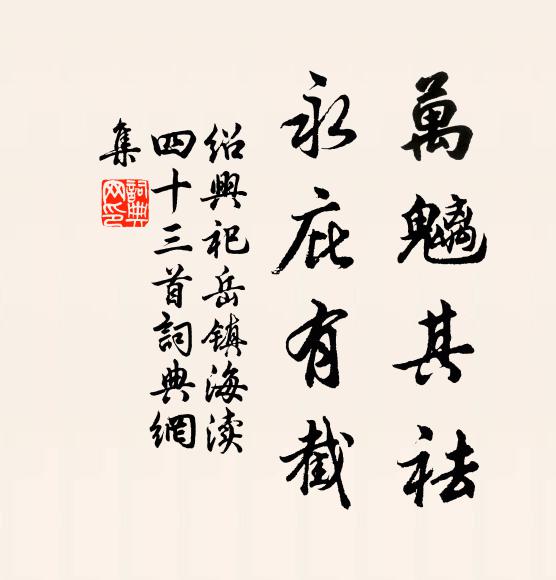 萬魑其祛
永庇有截
绍興祀岳镇海渎
四十三首詞典網
集
詞典
网印